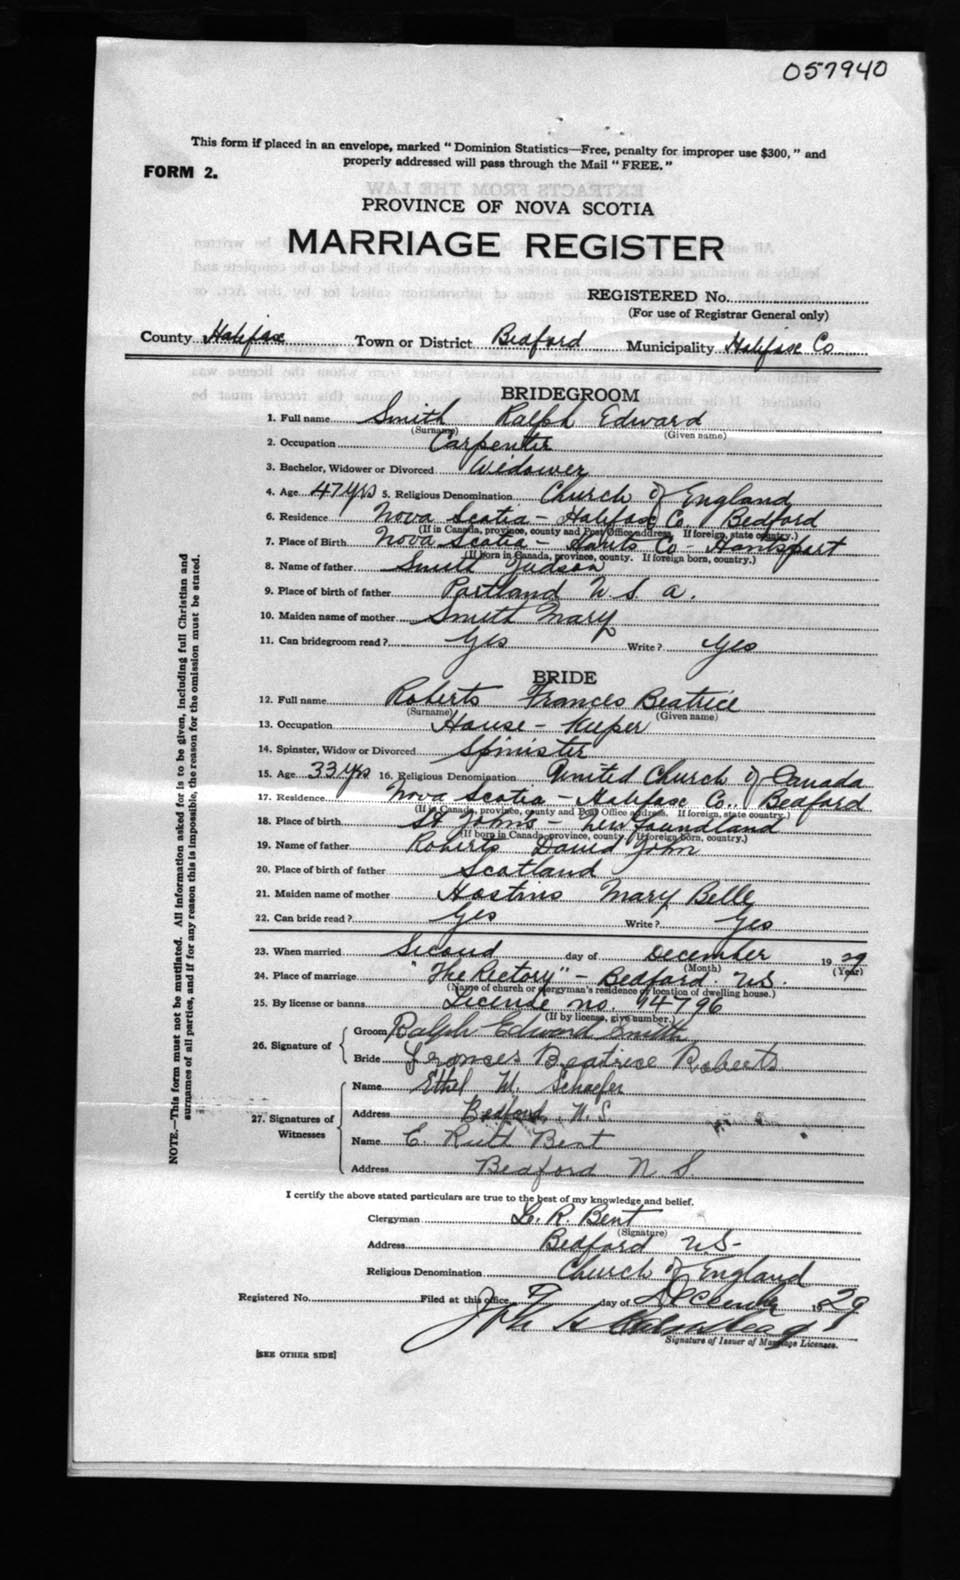 057940
This form if placed in an envelope, marked "Dominion Statistics—Free, penalty for improper use $300," and
properly addressed will pass through the Mail "FREE."
FORM 2.
PROVINCE OF NOVA SCOTIA
MARRIAGE REGISTER
REGISTERED No.
(For use of Registrar General only)
County Halifax Town or District Bedford Municipality Halifax Co
BRIDEGROOM
1. Full name Smith Ralph Edward
(Surname) (Given name)
2. Occupation Carpenter
3. Bachelor, Widower or Divorced Widower
4. Age 47 yrs 5. Religious Denomination Church of England
6. Residence Nova Scotia - Halifax Co. Bedford
(If in Canada, province, county and Post Office address. If foreign, state country.)
7. Place of Birth Nova Scotia - Hants Co Hantsport
(If born in Canada, province, county. If foreign born, country.)
8. Name of father Smith Judson
9. Place of birth of father Portland U S A.
10. Maiden name of mother Smith Mary
11. Can bridegroom read? Yes Write? Yes
BRIDE
12. Full name Roberts Frances Beatrice
(Surname) (Given name)
13. Occupation House-Keeper
14. Spinster, Widow or Divorced Spinister
15. Age 33 yrs 16. Religious Denomination United Church of Canada
17. Residence Nova Scotia - Halifax Co., Bedford
(If in Canada, province, county and Post Office address. If foreign, state country.)
18. Place of birth St Johns - Newfoundland
(If born in Canada, province, county. If foreign born, country.)
19. Name of father Roberts David John
20. Place of birth of father Scotland
21. Maiden name of mother Mary Belle
22. Can bride read? Yes Write? Yes
23. When married Second day of December 19 29
(Month) (Year)
24. Place of marriage "The Rectory" - Bedford N.S.
(Name of church or clergyman's residence or location of dwelling house.)
25. By license or banns License no. 94796
(If by license, give number.)
26. Signature of
Groom Ralph Edward Smith
Bride Frances Beatrice Roberts
27. Signatures of
Witnesses
Name Ethel M. Schaefer
Address Bedford, N.S.
Name E. Ruth Bent
Address Bedford N S.
I certify the above stated particulars are true to the best of my knowledge and belief.
Clergyman L. R. Bent
(Signature)
Address Bedford N.S.
Religious Denomination Church of England
Registered No. Filed at this office day of December 1929
Signature of Issuer of Marriage Licenses.
[SEE OTHER SIDE]
NOTE.—This form must not be mutilated. All information asked for is to be given, including full Christian and
surnames of all parties, and if for any reason this is impossible, the reason for the omission must be stated.